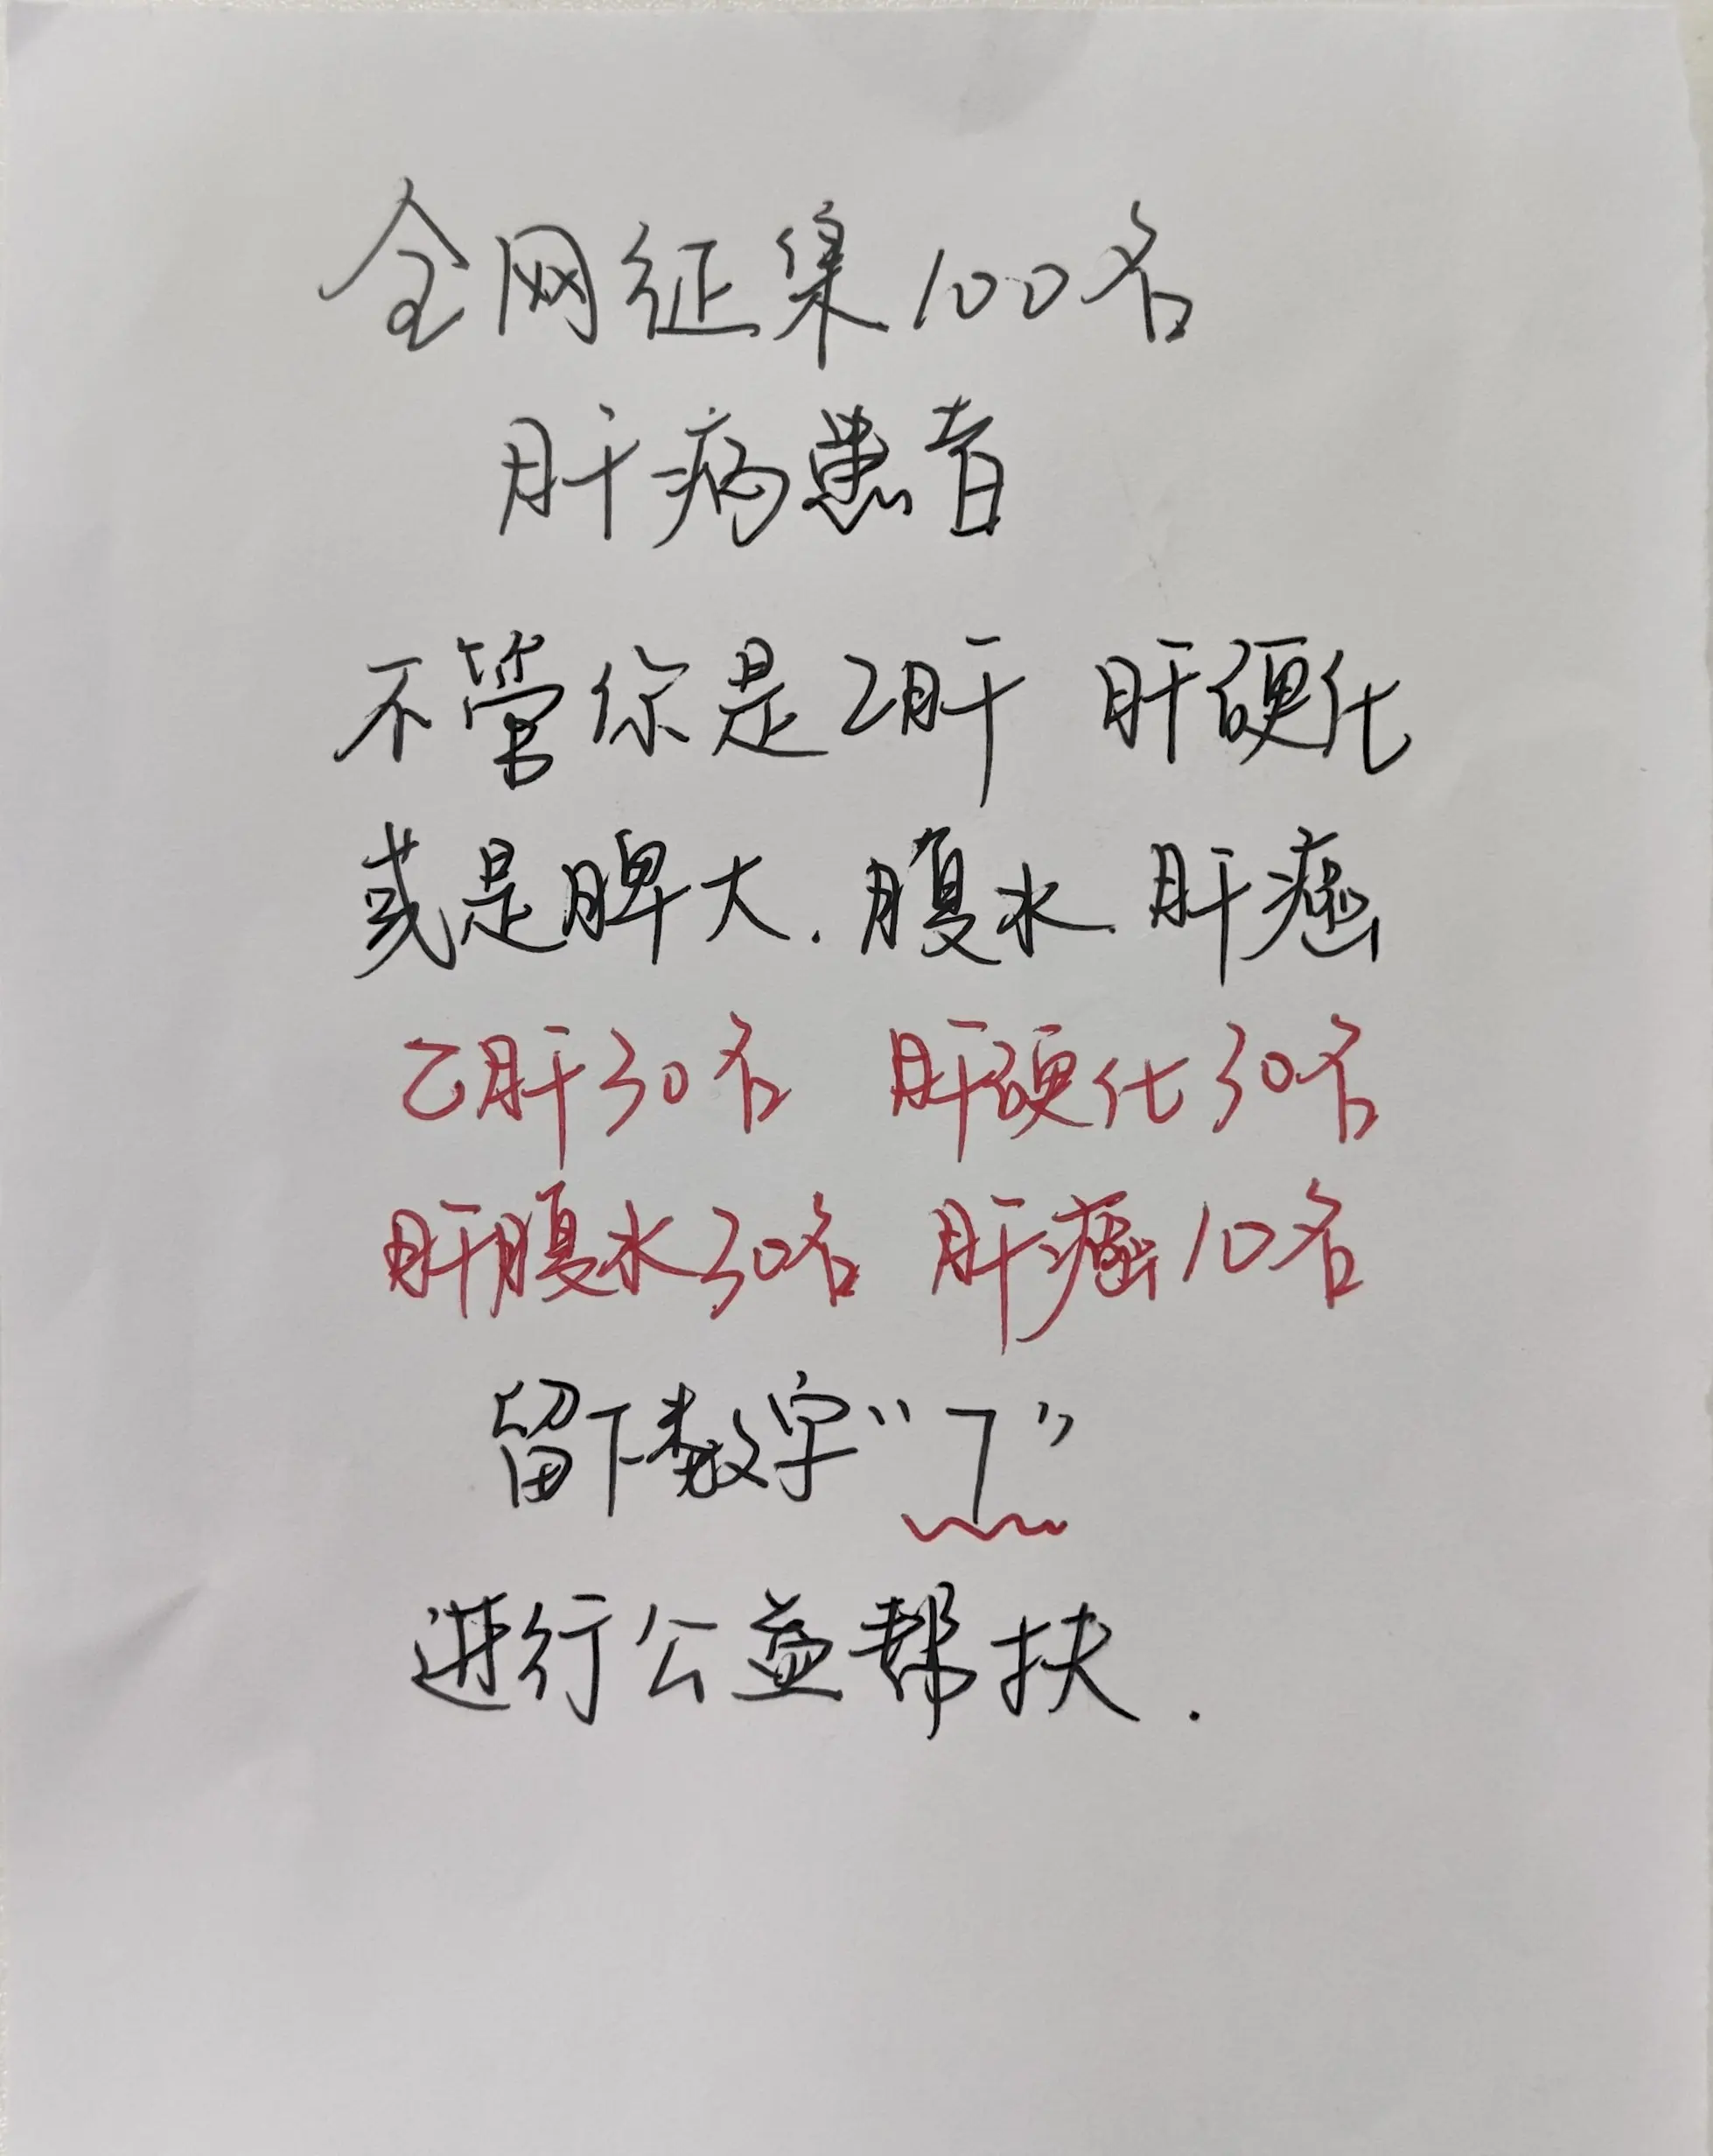 全网征集100名
肝病患者
不管你是乙肝 肝硬化
或是脾大.腹水.肝癌
乙肝30名 肝硬化30名
肝腹水30名 肝癌10名
留下数字“7”
进行公益帮扶.